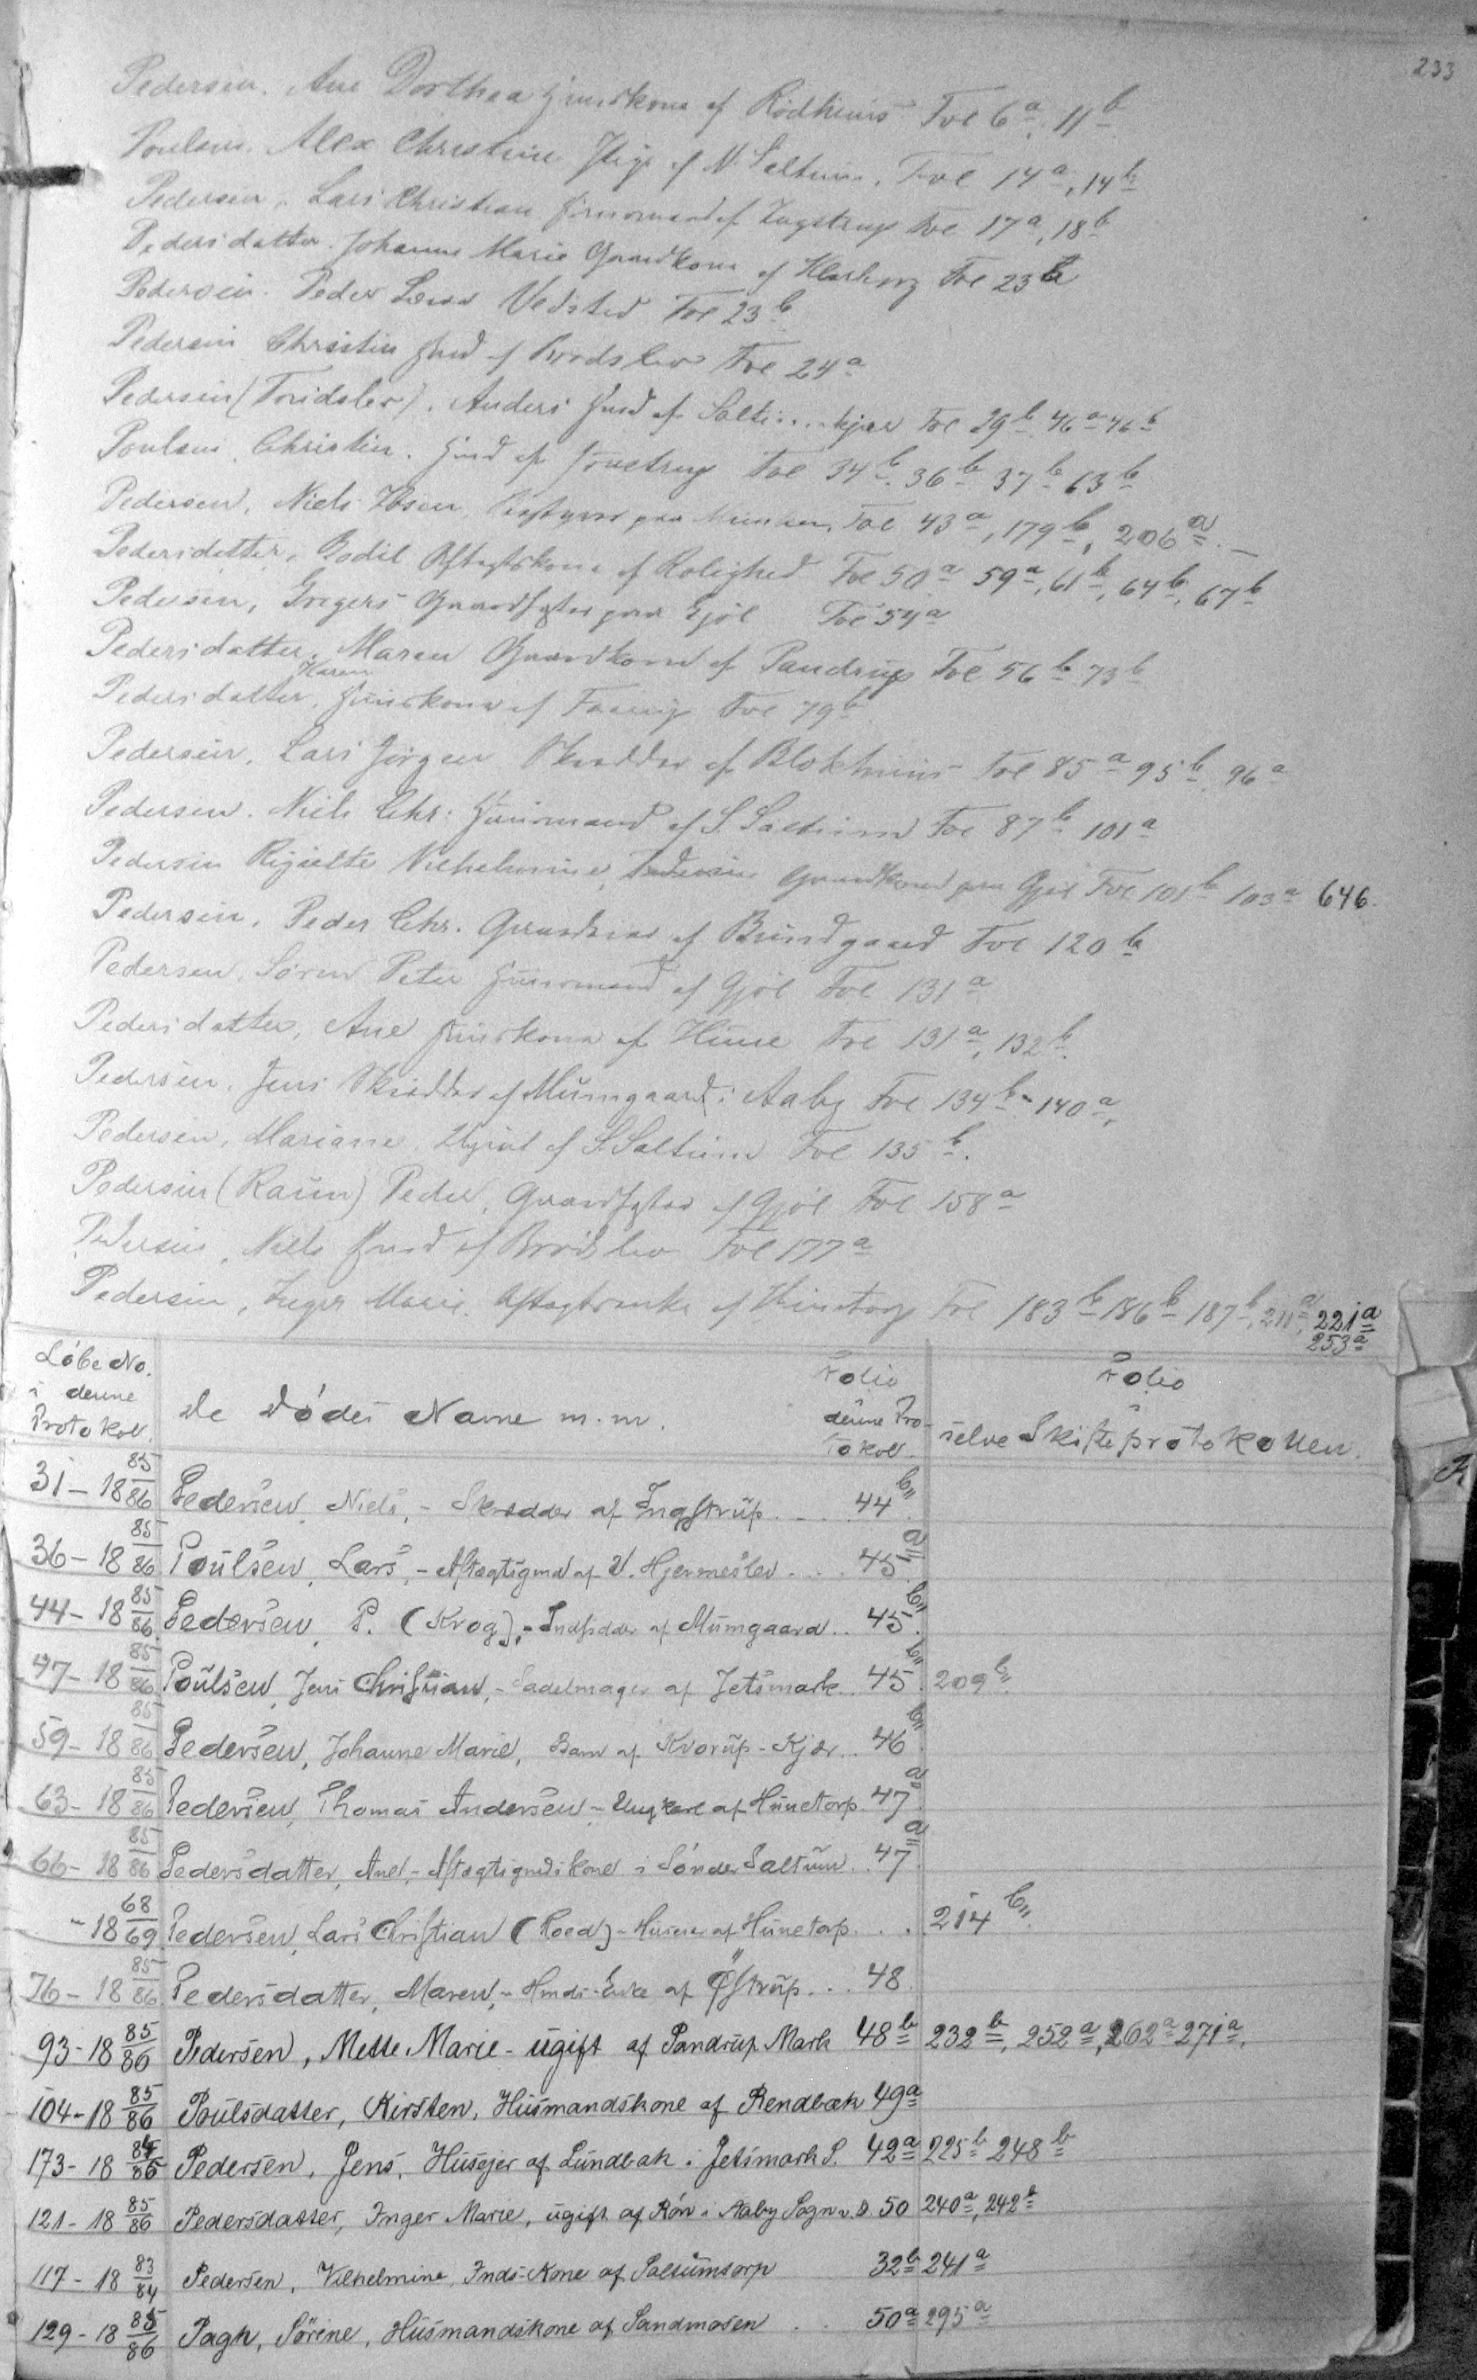 233
Pedersen. Ane Dorthea Huuskone af Rödhuus Fol 6a, 11b
Poulsen. Alex Christine Pige af N. Saltum. Fol 14a, 14b
Pedersen, Lars Christian Huusmand af Ingstrup Fol 17a, 18b
Pedersdatter. Johanne Marie Gaardkone af Fol 23b
Pedersen. Peder Vedsted Fol 23b
Pedersen Christen Hmd af Brodslev Fol 24a
Pedersen (Tridslev). Anders Hmd af Saltum kjær Fol 29b 46a 46b
Poulsen, Christen. Hmd af Fol 34b. 36b 37b 63b
Pedersen, Niels Ibsen, paa Fol 43a, 179b, 206a. —
Pedersdatter, Bodil Aftægtskone af Rolighed Fol 50a 59a, 61b, 64b, 67b
Pedersen, Gregers Gaardfæster paa Gjöl Fol 54a
Pedersdatter. Maren Gaardkone af Pandrup Fol 56b 73b
Pedersdatter, Karen Huuskone af Faarup Fol 79b
Pedersen, Lars Jörgen Skrædder af Blokhuus Fol 85a 95b, 96a
Pedersen. Niels Chr: Huusmand af S. Saltum Fol 87b 101a
Pedersen Vilhelmine, Gaardkone paa Gjöl Fol 101b 103a 646.
Pedersen, Peder Chr. af Bundgaard Fol 120b
Pedersen, Sören Peter Huusmand af Gjöl Fol 131a
Pedersdatter, Ane Huuskone af Hune Fol 131a, 132b.
Pedersen. Jens Skrædder af Mumgaard i Aaby Fol 134b - 140a,
Pedersen, Mariane. Ugivt af S. Saltum Fol 135b.
Pedersen (Raun) Peder, Gaardfæster af Gjöl Fol 158a
Pedersen, Niels Hmd af Brodslev Fol 177a
Pedersen, Inger Marie, Aftægtsenke af Hunetorp Fol 183b 186b 187b, 211a, 221a
253a
Löbe No. i denne Protokol. De Dödes Navne m.m. Folio denne Protokol. Folio i selve Skifteprotokollen.
31 - 18 85/86 Pedersen, Niels, - Skrædder af Ingstrup.... 44b
36 - 18 85/86 Poulsen, Lars, - Aftægtsmd af V. Hjermeslev.... 45a
44 - 18 85/86 Pedersen, P. (Krog), - Indsidder af Mumgaard.. 45b
47 - 18 85/86 Poulsen, Jens Christian, - Sadelmager af Jetsmark.. 45b 209b
59 - 18 85/86 Pedersen, Johanne Marie, Barn af Kvorup-Kjær.. 46b
63 - 18 85/86 Pedersen, Thomas Andersen - Ungkarl af Hunetorp. 47a
66 - 18 85/86 Pedersdatter, Ane, - Aftægtsmdskone i Sönder Saltum.. 47a
- 18 68/69 Pedersen, Lars Christian (Koed) - Huseier af Hunetorp... 214b
76 - 18 85/86 Pedersdatter, Maren, - Hmds-Enke af Östrup... 48
93 - 18 85/86 Pedersen, Mette Marie - ugift af Pandrup Mark 48b 232b, 252a, 262a 271a,
104 - 18 85/86 Poulsdatter, Kirsten, Husmandskone af Rendbæk 49a
173 - 18 84/85 Pedersen, Jens, Husejer af Lundbak i Jetsmark S. 42a 225b 248b
121 - 18 85/86 Pedersdatter, Inger Marie, ugift af Rön i Aaby Sogn v. D. 50 240a, 242b
117 - 18 83/84 Pedersen, Vilhelmine, Inds-Kone af Saltumtorp 32b 241a
129 - 18 85/86 Pagh, Sörine, Husmandskone af Sandmosen.. 50a 295a